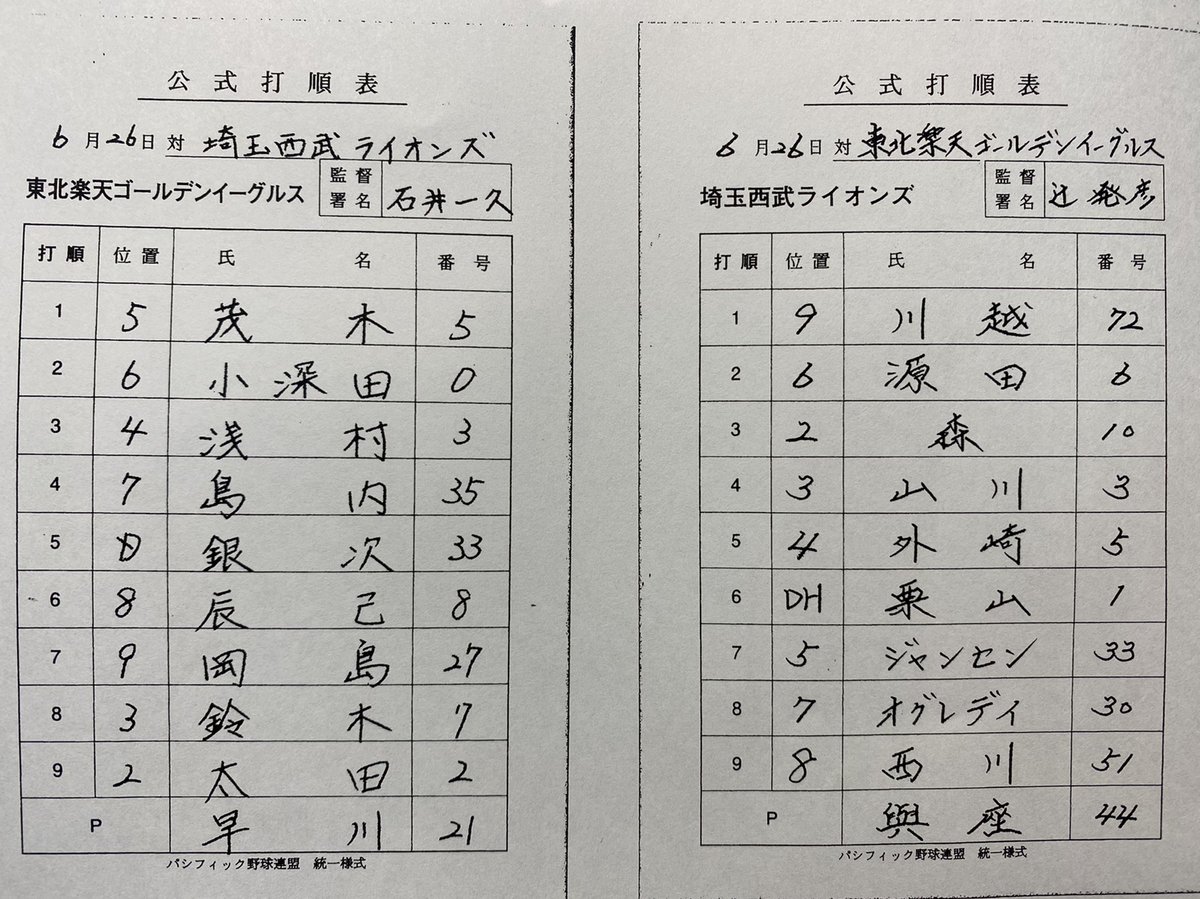 公式打順表
6月26日対 埼玉西武ライオンズ
東北楽天ゴールデンイーグルス 監督署名 石井一久
打順 位置 氏名 番号
1 5 茂木 5
2 6 小深田 0
3 4 浅村 3
4 7 島内 35
5 D 銀次 33
6 8 辰己 8
7 9 岡島 27
8 3 鈴木 7
9 2 太田 2
P 早川 21
パシフィック野球連盟 統一様式
公式打順表
6月26日対 東北楽天ゴールデンイーグルス
埼玉西武ライオンズ 監督署名 辻発彦
打順 位置 氏名 番号
1 9 川越 72
2 6 源田 6
3 2 森 10
4 3 山川 3
5 4 外崎 5
6 DH 栗山 1
7 5 ジャンセン 33
8 7 オグレディ 30
9 8 西川 51
P 與座 44
パシフィック野球連盟 統一様式